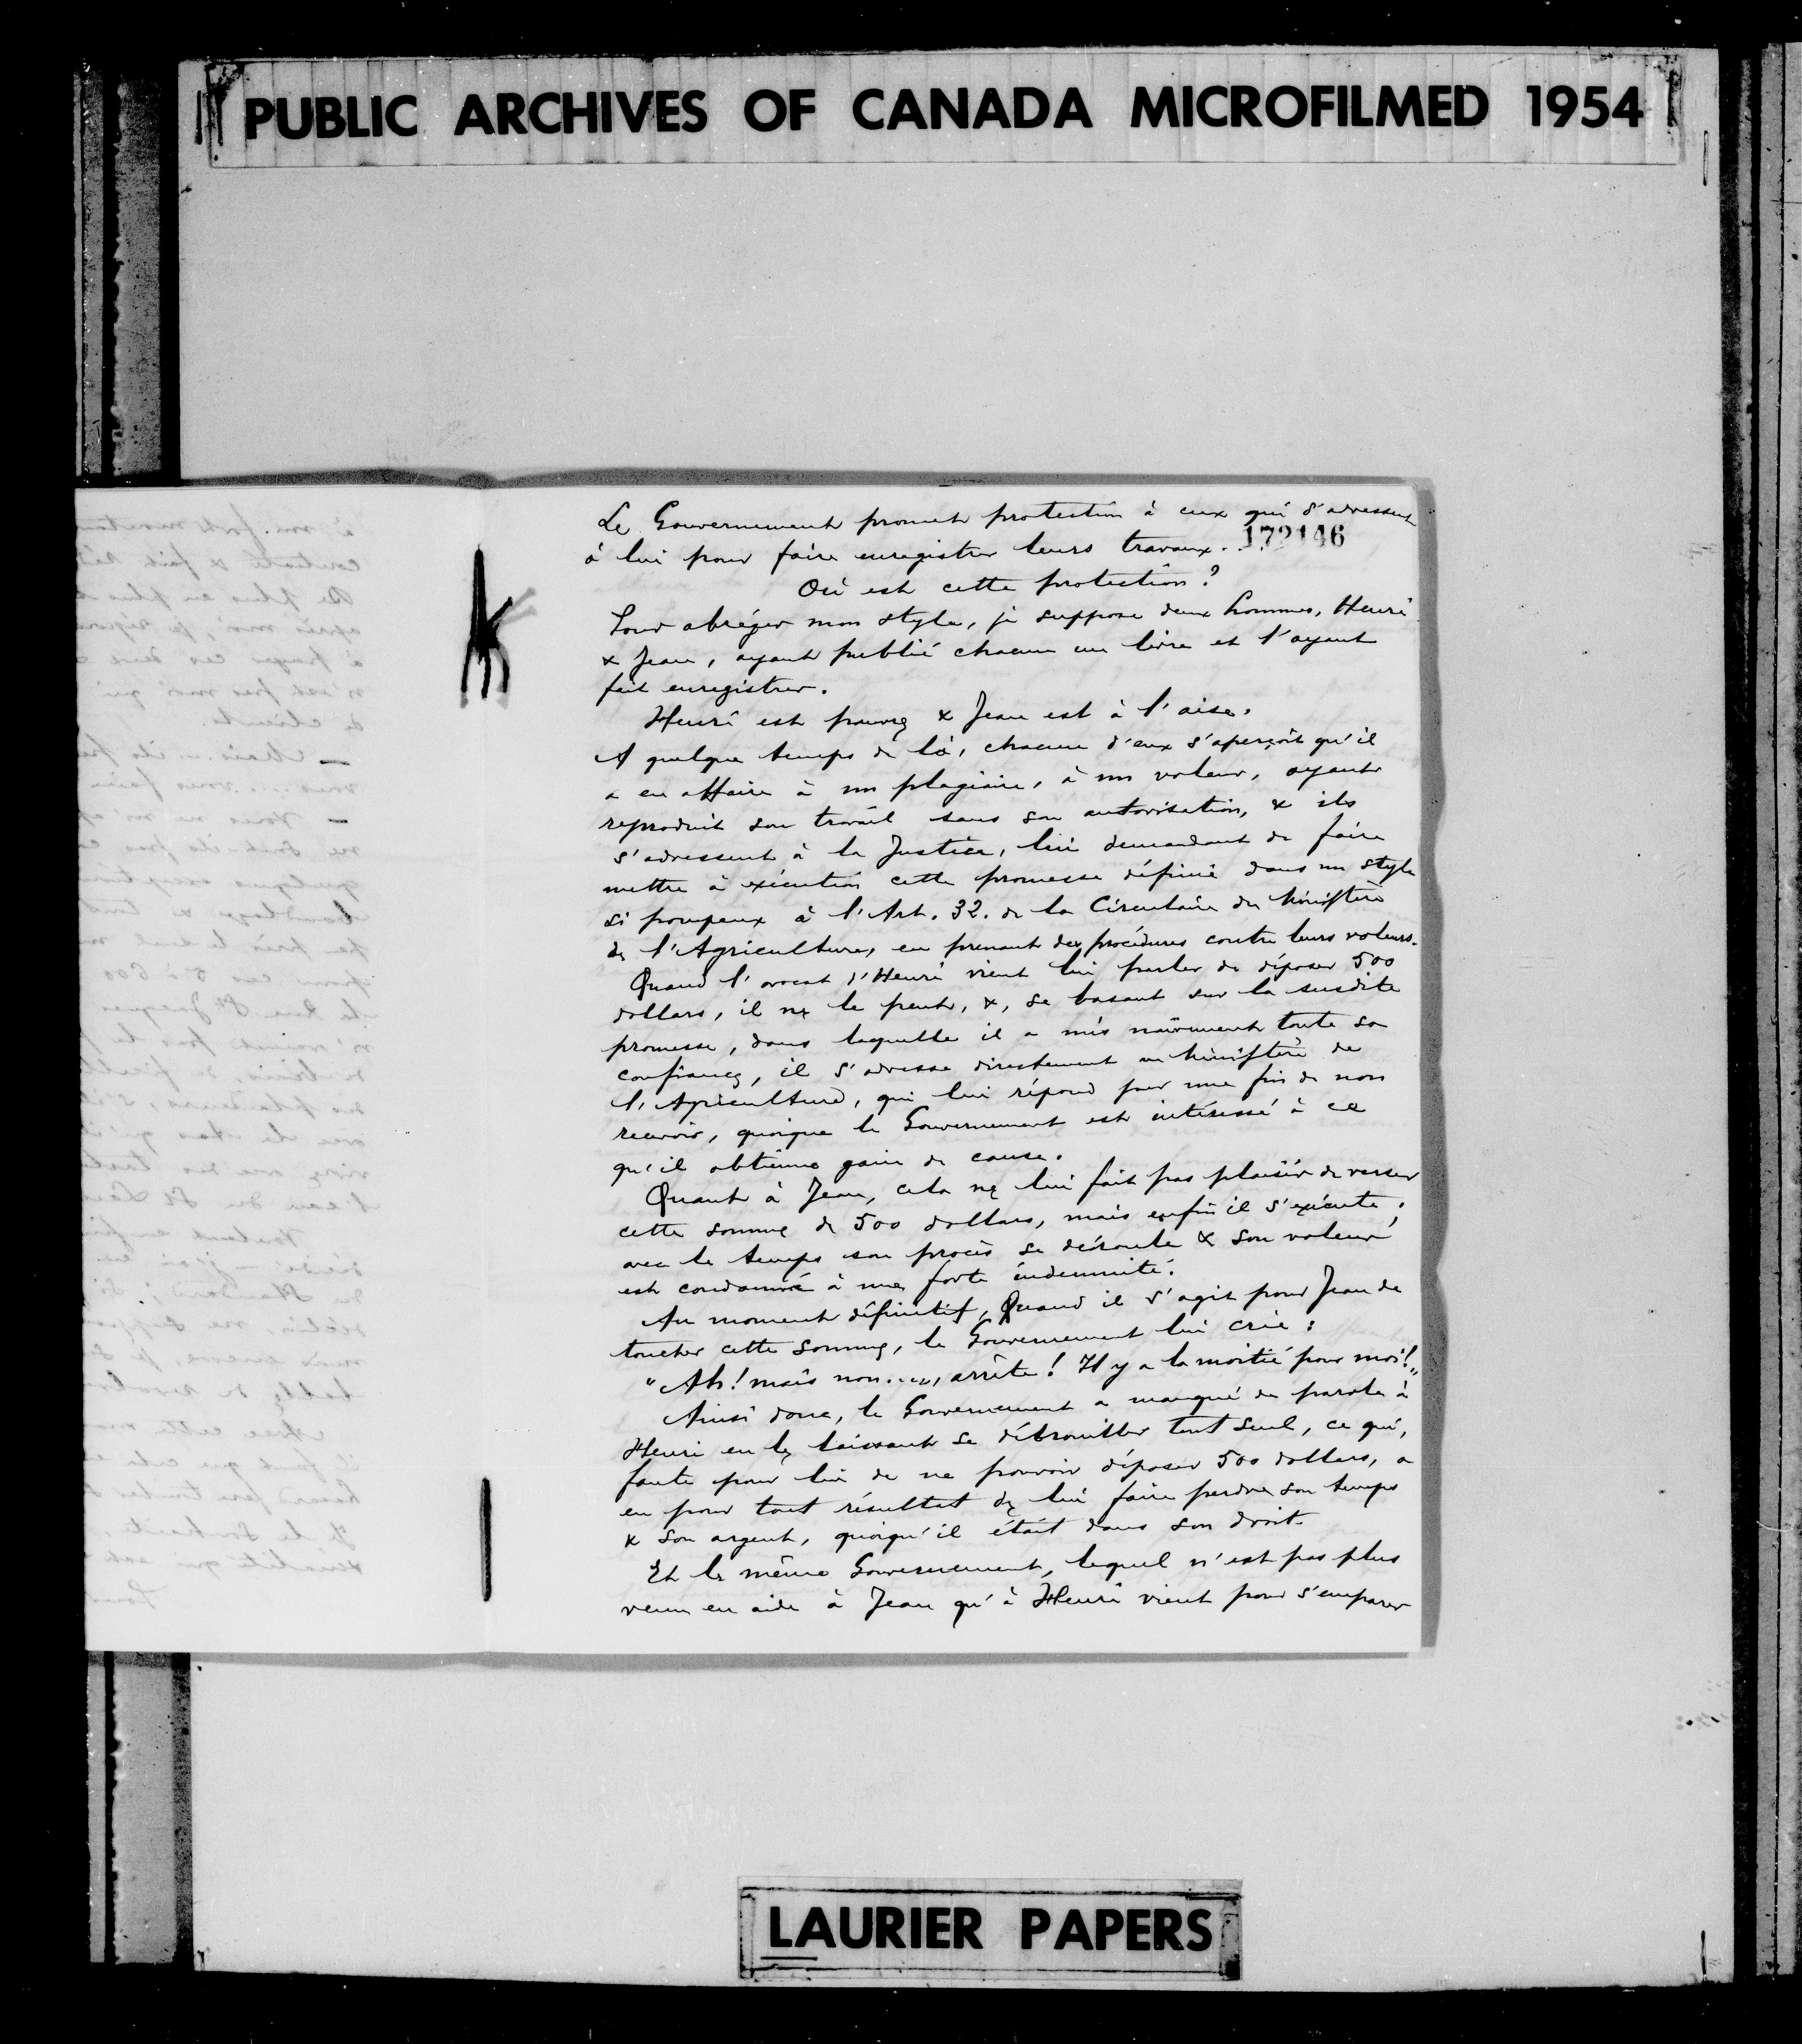 PUBLIC ARCHIVES OF CANADA MICROFILMED 1954
Le Gouvernement promet protection à ceux qui s'adressent
172146
à lui pour faire enregistrer leurs travaux...
Où est cette protection?
Pour abréger mon style, je suppose deux hommes, Henri
& Jean, ayant publié chacun un livre et l'ayant
fait enregistrer.
Henri est pauvre & Jean est à l'aise.
A quelque temps de là, chacun d'eux s'aperçoit qu'il
a eu affaire à un plagiaire, à un voleur, ayant
reproduit son travail sans son autorisation, & ils
s'adressent à la Justice, lui demandant de faire
mettre à exécution cette promesse définie dans un style
si pompeux à l'Art. 32. de la Circulaire du Ministère
de l'Agriculture, en prenant des procédures contre leurs voleurs.
Quand l'avocat d'Henri vient lui parler de déposer 500
dollars, il ne le peut, &, se basant sur la susdite
promesse, dans laquelle il a mis naïvement toute sa
confiance, il s'adresse directement au Ministère de
l'Agriculture, qui lui répond par une fin de non
recevoir, quoique le Gouvernement est intéressé à ce
qu'il obtienne gain de cause.
Quant à Jean, cela ne lui fait pas plaisir de verser
cette somme de 500 dollars, mais enfin il s'exécute;
avec le temps son procès se déroule & son voleur
est condamné à une forte indemnité.
Au moment définitif, Quand il s'agit pour Jean de
toucher cette somme, le Gouvernement lui crie:
"Ah! mais non...., arrête! Il y a la moitié pour moi!"
Ainsi donc, le Gouvernement a manqué de parole à
Henri en le laissant se débrouiller tout seul, ce qui,
faute pour lui de ne pouvoir déposer 500 dollars, a
eu pour tout résultat de lui faire perdre son temps
& son argent, quoiqu'il était dans son droit.
Et le même Gouvernement, lequel n'est pas plus
venu en aide à Jean qu'à Henri vient pour s'emparer
LAURIER PAPERS